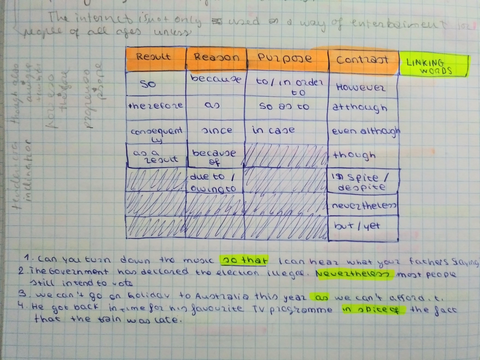 The internet is not only used as a way of entertainment for
people of all ages unless
Result Reason Purpose Contrast LINKING WORDS
so because to / in order to However
therefore as so as to although
consequently since in case even although
as a result because of though
due to / owing to in spite / despite
nevertheless
but / yet
1. Can you turn down the music so that I can hear what your father's saying
2. The Government has declared the election illegal. Nevertheless most people
still intend to vote
3. We can't go on holiday to Australia this year as we can't afford it.
4. He got back in time for his favourite TV programme in spite of the fact
that the train was late.